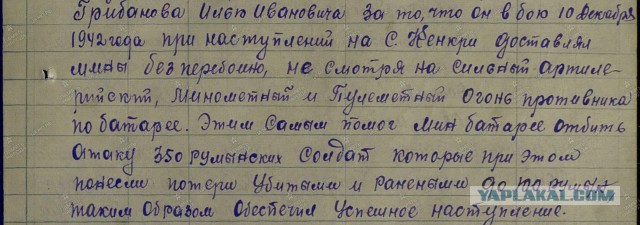 Грибанова Илью Ивановича за то, что он в бою 10 декабря
1942 года при наступлений на с. Кенкри доставлял
мины без перебоино, не смотря на сильный артиле-
рийский, минометный и Пулеметный огонь противника
по батарее. Этим самым помог мин батарее отбить
атаку 350 румынских солдат которые при этом
понесли потери убитыми и ранеными до 100 румын
таким образом обеспечил успешное наступление.
YAPLAKAL.COM